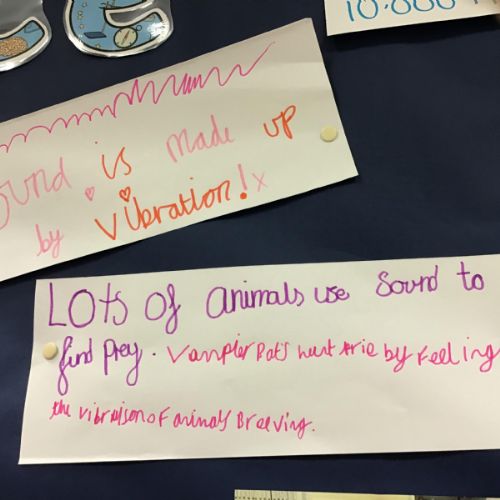 10.000
ound is made up
by vibration! x
LOts Of animals use Sound to
find prey. Vampier Bats hunt trie by Feeling
the vibraison of animals Breeving.